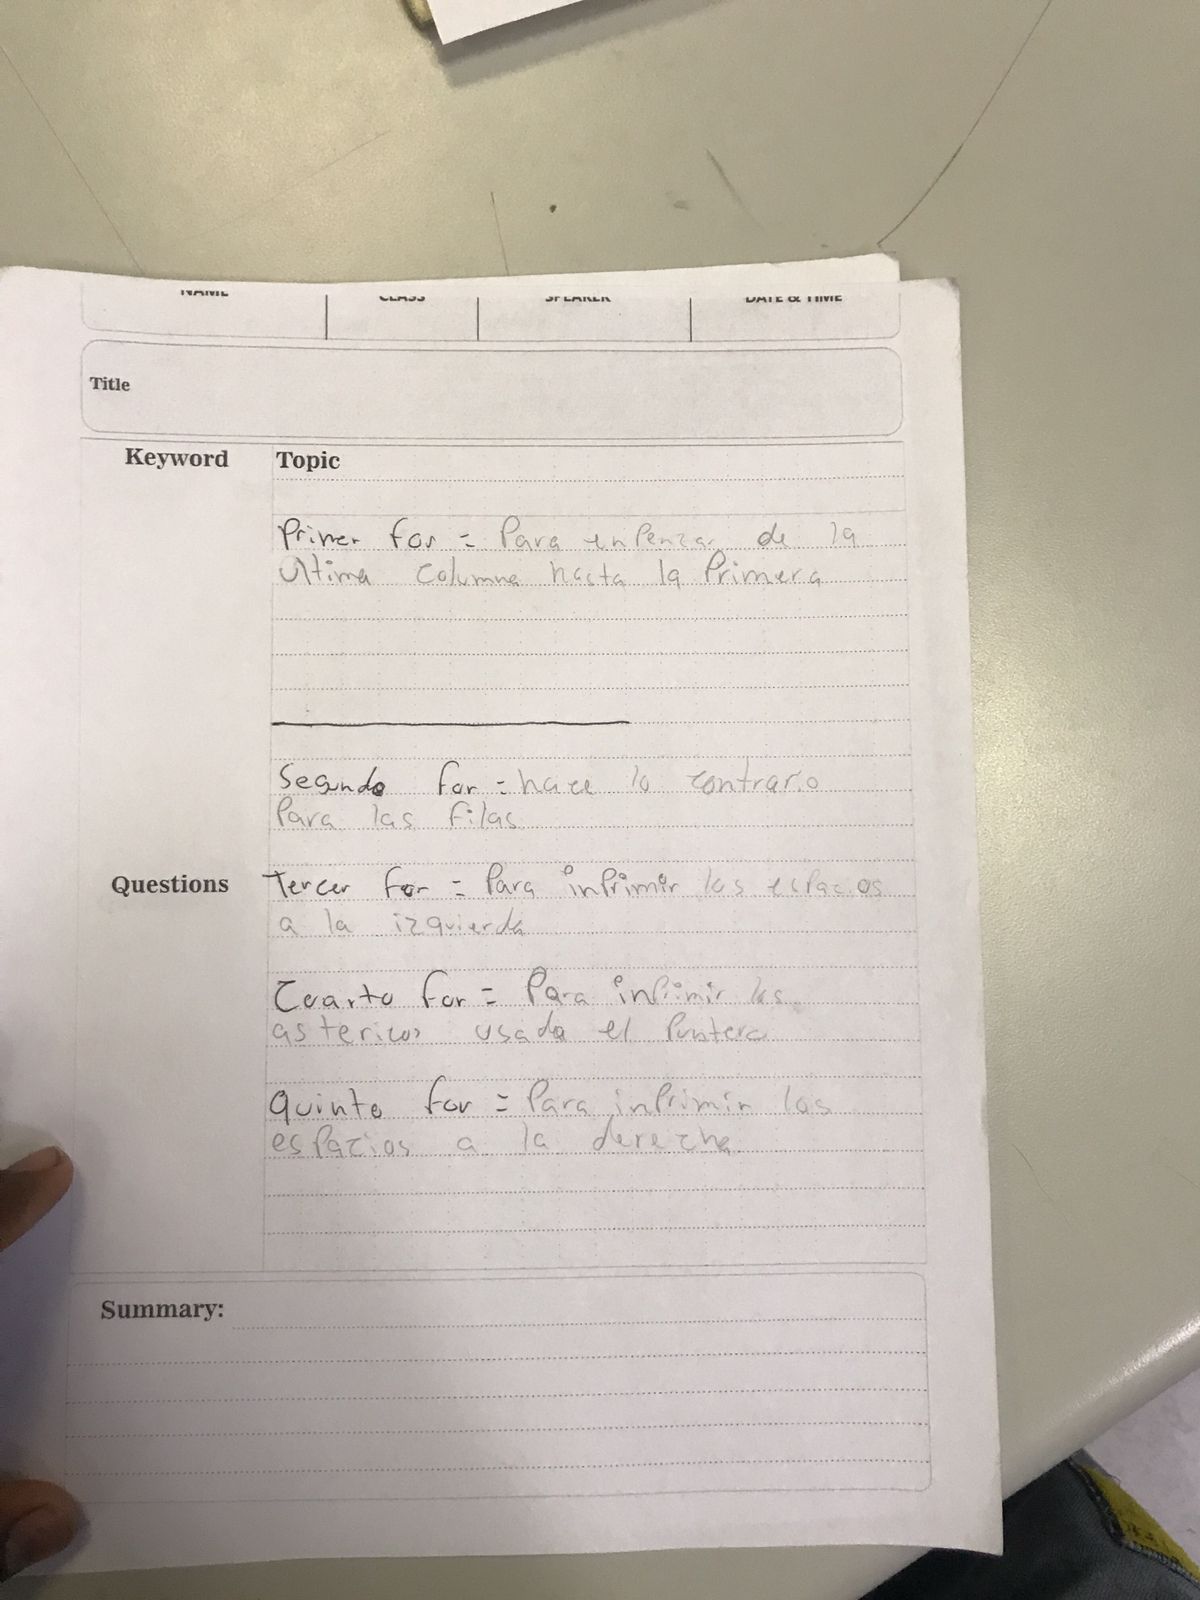 NAME CLASS SPEAKER DATE & TIME
Title
Keyword Topic
Primer for = Para enpenzar de la
Ultima columna hasta la Primera
Segundo for = hace lo contrario
Para las filas
Questions
Tercer for = Para inprimir los espacios
a la izquierda
Cuarto for = Para inprimir los
astericos usado el Puntero
Quinto for = Para inprimir los
espacios a la derecha
Summary: